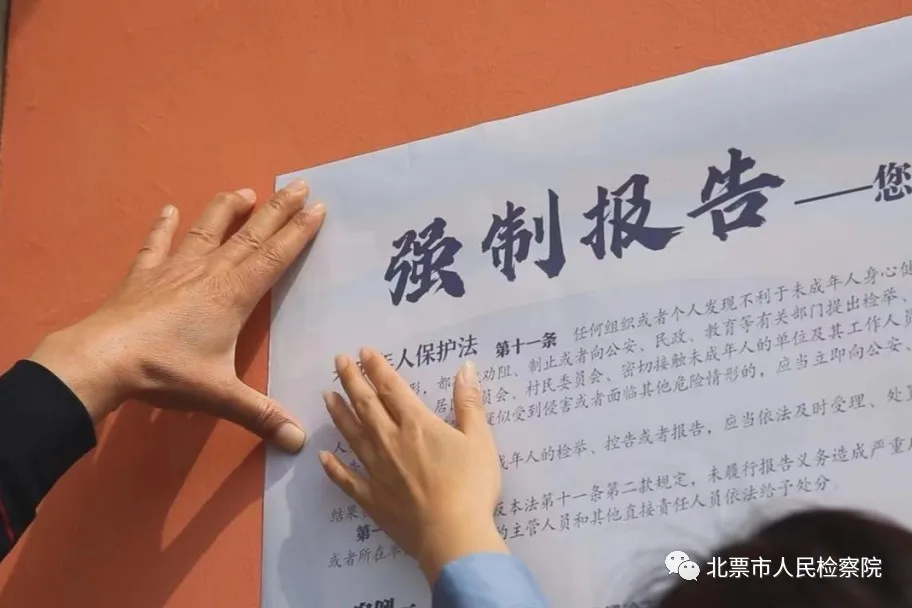 强制报告——您
人保护法 第十一条 任何组织或者个人发现不利于未成年人身心健
劝阻、制止或者向公安、民政、教育等有关部门提出检举、
员会、村民委员会、密切接触未成年人的单位及其工作人员
似受到侵害或者面临其他危险情形的,应当立即向公安、
成年人的检举、控告或者报告,应当依法及时受理、处置
反本法第十一条第二款规定,未履行报告义务造成严重后
结果
的主管人员和其他直接责任人员依法给予处分。
第一
或者所在单
北票市人民检察院